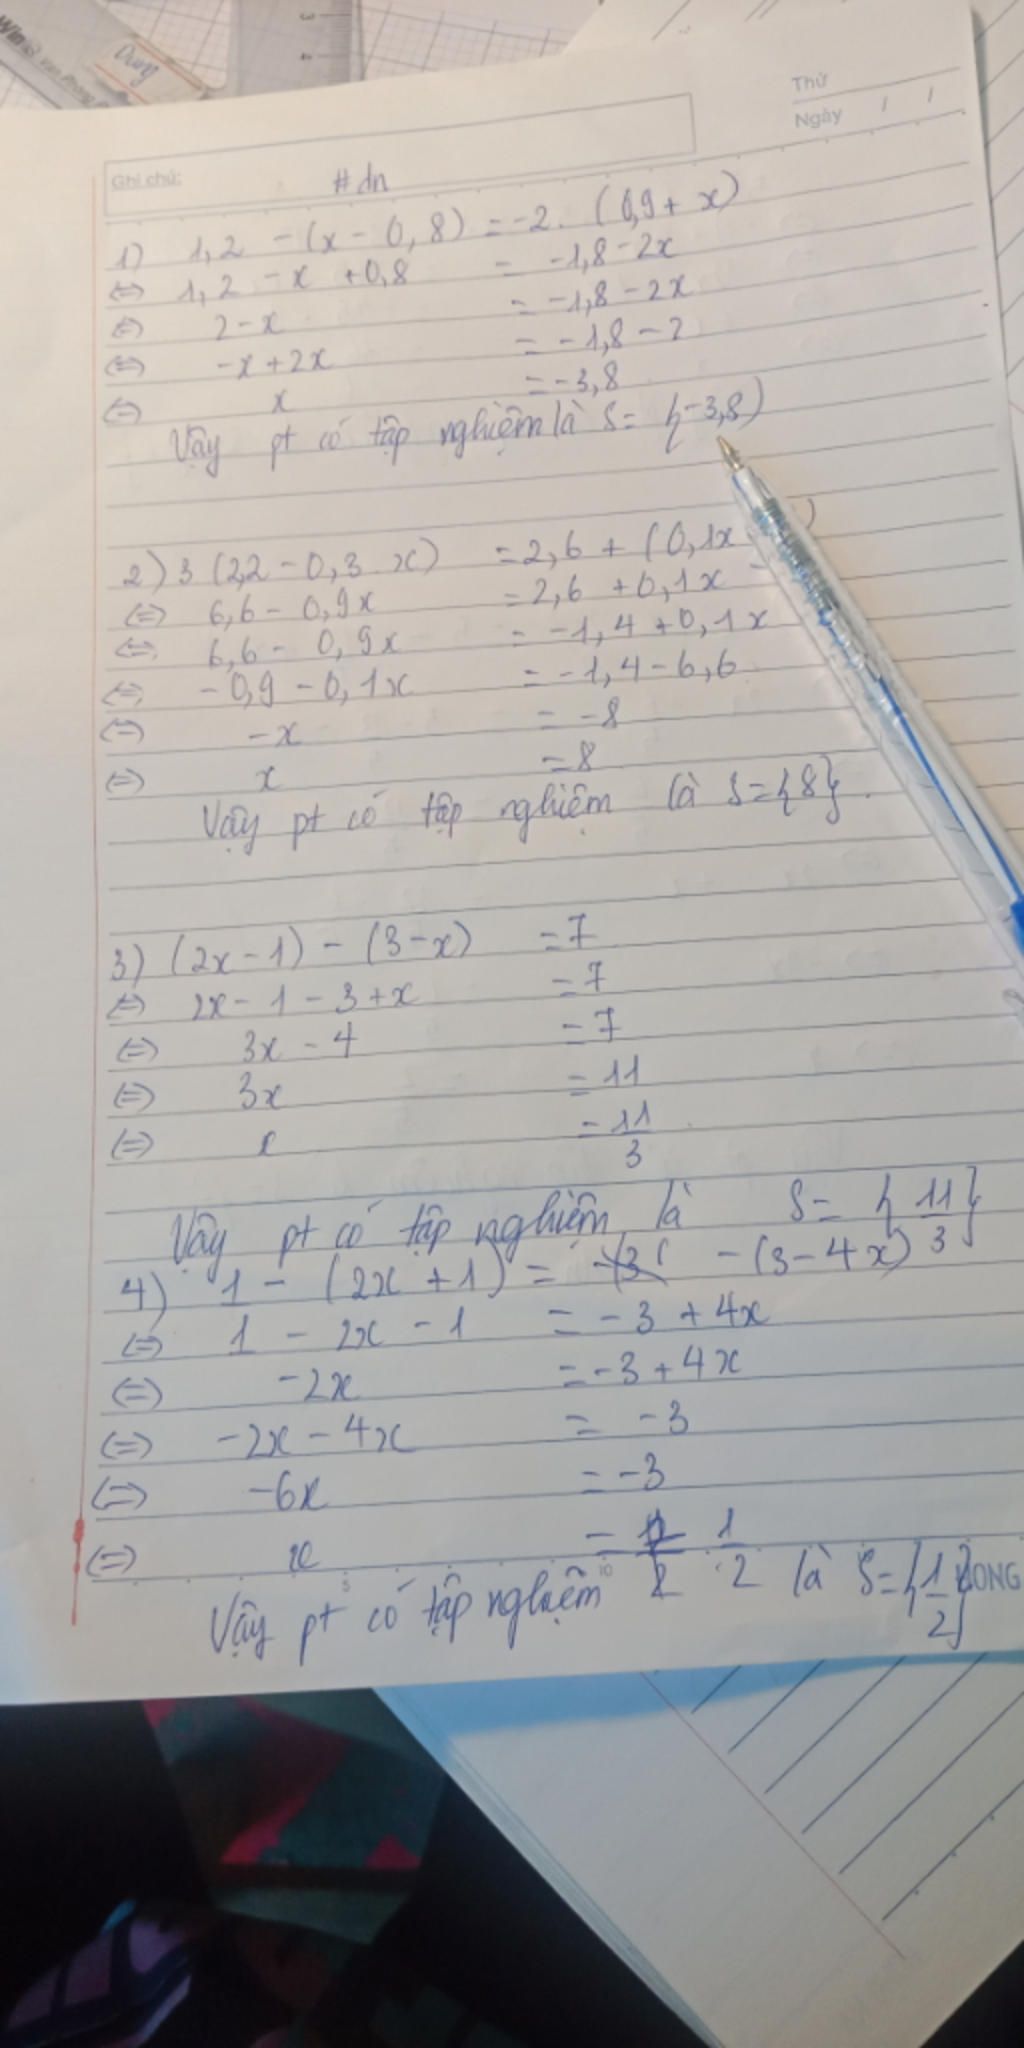 Dung
Thứ
Ngày / /
Ghi chú:
#dn
1) 1,2 - (x - 0,8) = -2. (0,9 + x)
⇔ 1,2 - x + 0,8 = -1,8 - 2x
⇔ 2 - x = -1,8 - 2x
⇔ -x + 2x = -1,8 - 2
⇔ x = -3,8
Vậy pt có tập nghiệm là S = {-3,8}
2) 3 (2,2 - 0,3 x) = 2,6 + (0,1x )
⇔ 6,6 - 0,9x = 2,6 + 0,1x -
⇔ 6,6 - 0,9x = -1,4 + 0,1x
⇔ -0,9 - 0,1x = -1,4 - 6,6
⇔ -x = -8
⇔ x = 8
Vậy pt có tập nghiệm là S = {8}.
3) (2x - 1) - (3 - x) = 7
⇔ 2x - 1 - 3 + x = 7
⇔ 3x - 4 = 7
⇔ 3x = 11
⇔ x = 11/3
Vậy pt có tập nghiệm là S = {11/3}
4) 1 - (2x + 1) = - (3 - 4x)
⇔ 1 - 2x - 1 = -3 + 4x
⇔ -2x = -3 + 4x
⇔ -2x - 4x = -3
⇔ -6x = -3
⇔ x = 1/2
Vậy pt có tập nghiệm là S = {1/2}
5 10 ONG